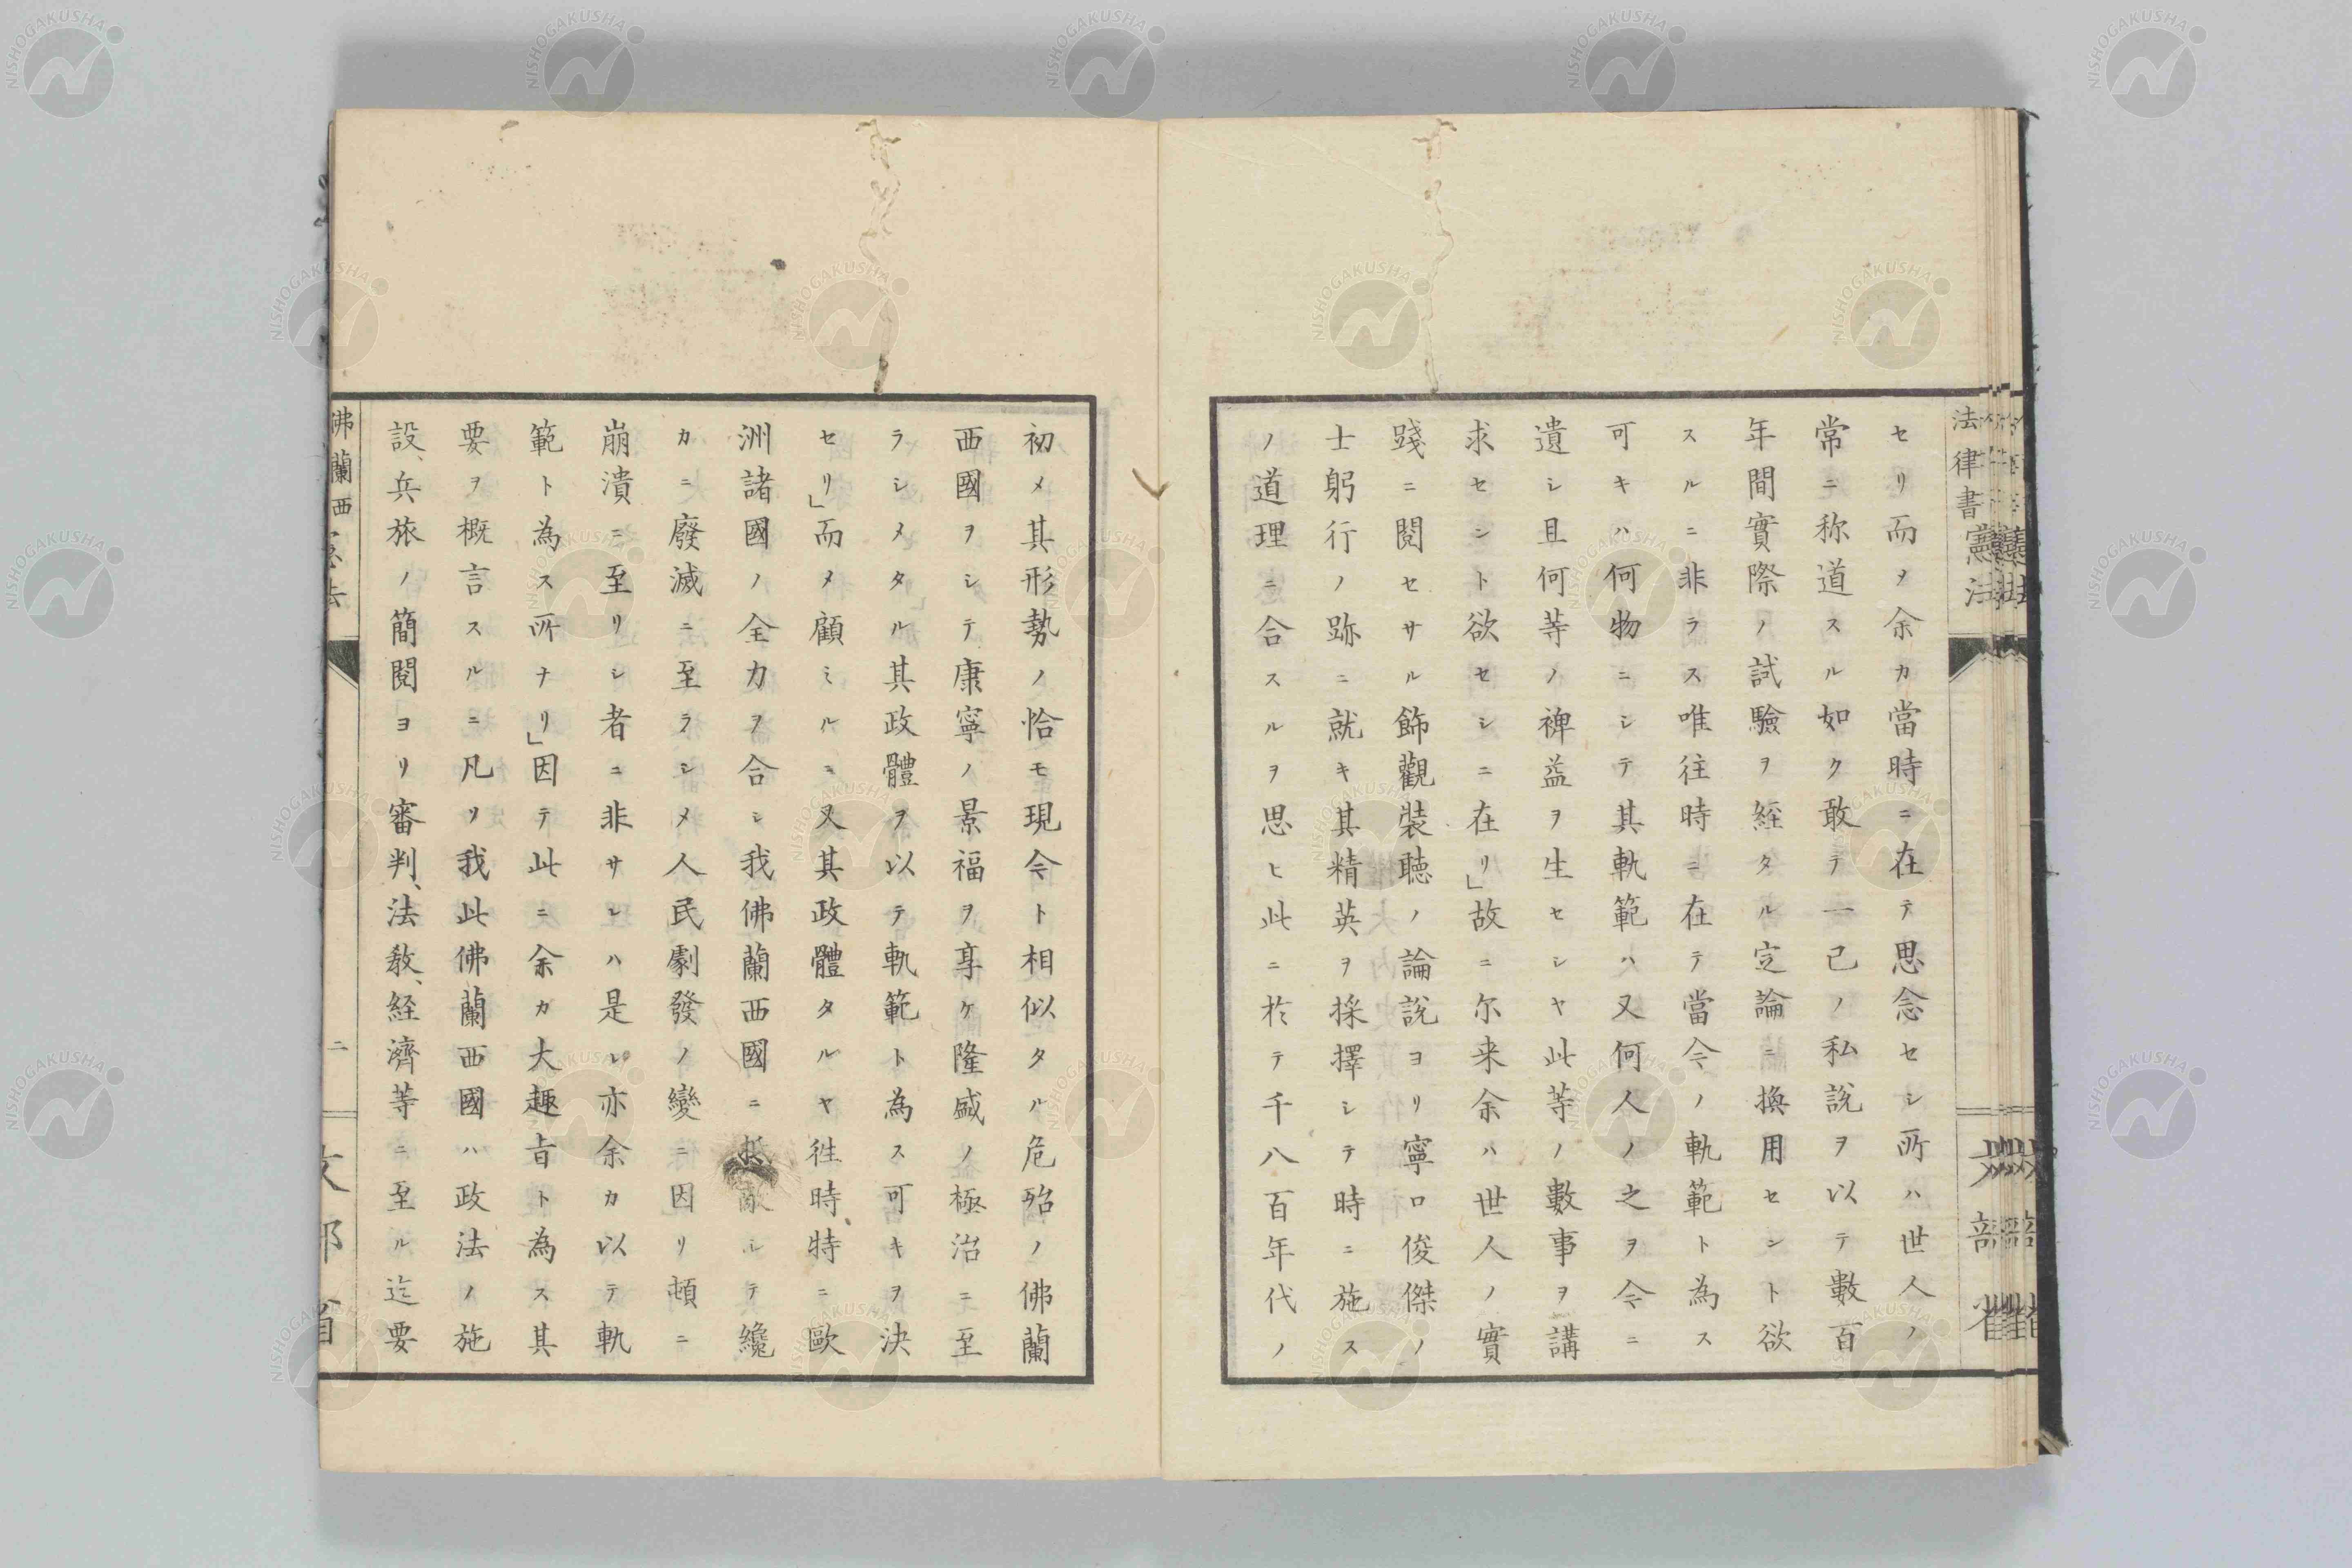 セリ而ヲ余カ當時ニ在テ思念セシ所ハ世人ノ
常ニ称道スル如ク敢テ一己ノ私說ヲ以テ數百
年間實際ノ試驗ヲ経タル定論ニ換用セント欲
スルニ非ラス唯往時ニ在テ當今ノ軌範ト為ス
可キハ何物ニシテ其軌範ハ又何人ノ之ヲ今ニ
遺シ且何等ノ裨益ヲ生セシヤ此等ノ數事ヲ講
求センと欲セシニ在リ」故ニ尔来余ハ世人ノ實
踐ニ閱セサル飾觀裝聽ノ論說ヨリ寧ロ俊傑ノ
士躬行ノ跡ニ就キ其精英ヲ採擇シテ時ニ施ス
ノ道理ニ合スルヲ思ヒ此ニ於テ千八百年代ノ
初メ其形勢ノ恰モ現今ト相似タル危殆ノ佛蘭
西國ヲシテ康寧ノ景福ヲ享ケ隆盛ノ極治ニ至
ラシメタル其政體ヲ以テ軌範ト為ス可キヲ決
セリ」而メ顧ミルニ又其政體タルヤ徃時特ニ歐
洲諸國ノ全力ヲ合シ我佛蘭西國ニ抵敵シテ纔
カニ廢滅ニ至ラシメ人民劇發ノ變ニ因リ頓ニ
崩潰ニ至リシ者ニ非サレハ是レ亦余カ以テ軌
範ト為ス所ナリ」因テ此ニ余カ大趣旨ト為ス其
要ヲ概言スルニ凡ソ我此佛蘭西國ハ政法ノ施
設、兵旅ノ簡閱ヨリ審判、法教、経濟等ニ至ル迄要
佛蘭西憲法
二
文部省
法律書
憲法
NISHOGAKUSHA